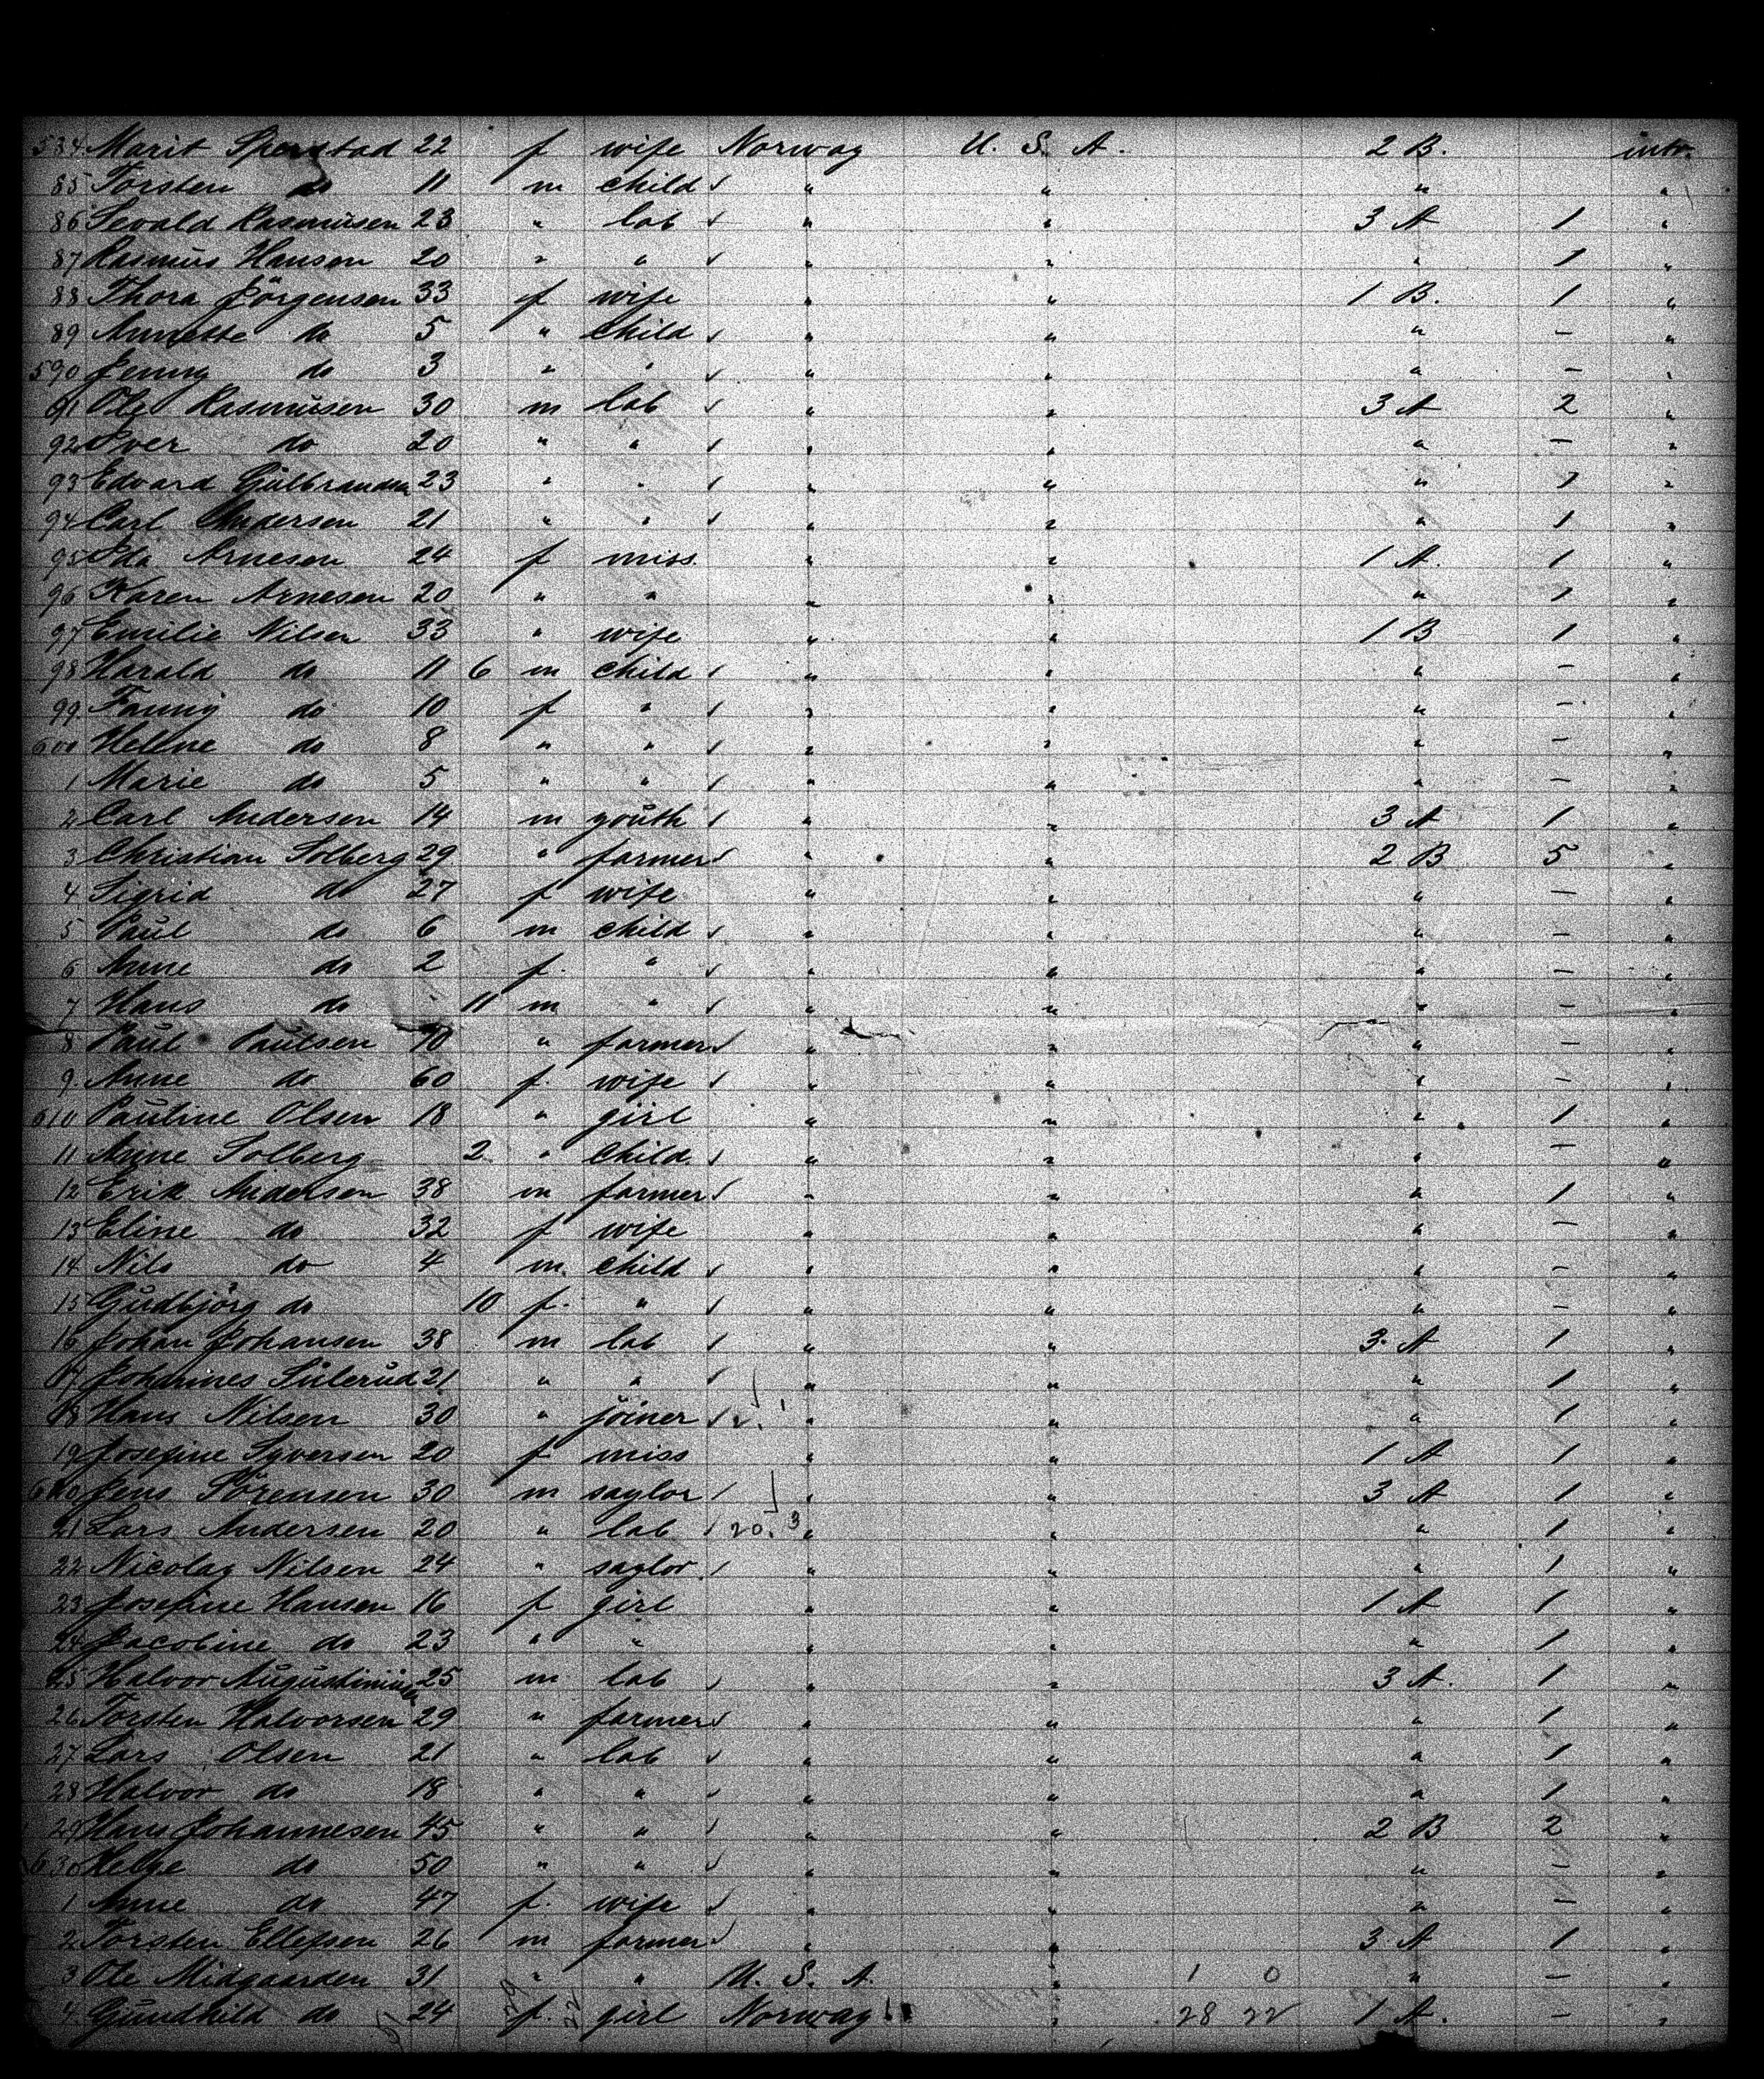 534 Marit Sperstad 22 f wife Norway U. S. A. 2 B. intr.
85 Torsten do 11 m child " " " "
86 Sevald Rasmusen 23 " lab " " 3 A 1 "
87 Rasmus Hansen 20 " " " " " 1 "
88 Thora Jörgensen 33 f wife " " 1 B. 1 "
89 Annette do 5 " child " " " – "
590 Jenny do 3 " " " " " – "
91 Ole Rasmusen 30 m lab " " 3 A 2 "
92 Iver do 20 " " " " " – "
93 Edvard Gulbrandsen 23 " " " " " 1 "
94 Carl Andersen 21 " " " " " 1 "
95 Ida Arnesen 24 f miss. " " 1 A. 1 "
96 Karen Arnesen 20 " " " " " 1 "
97 Emilie Nilsen 33 " wife " " 1 B 1 "
98 Harald do 11 6 m child " " " – "
99 Fanny do 10 f " " " " – "
600 Helene do 8 " " " " " – "
1 Marie do 5 " " " " " – "
2 Carl Andersen 14 m youth " " 3 A 1 "
3 Christian Solberg 29 " farmer " " 2 B 5 "
4 Sigrid do 27 f wife " " " – "
5 Paul do 6 m child " " " – "
6 Anne do 2 f. " " " " – "
7 Hans do - 11 m " " " " – "
8 Paul Paulsen 70 " farmer " " " – "
9 Anne do 60 f. wife " " " – "
610 Pauline Olsen 18 " girl " " " 1 "
11 Anne Solberg 2 " child " " " – "
12 Erik Andersen 38 m farmer " " " 1 "
13 Eline do 32 f wife " " " – "
14 Nils do 4 m. child " " " – "
15 Gudbjörg do 10 f. " " " " – "
16 Johan Johansen 38 m lab " " 3 A 1 "
17 Johannes Sulerud 21 " " " " " 1 "
18 Hans Nilsen 30 " joiner " " " 1 "
19 Josefine Syversen 20 f miss " " 1 A 1 "
620 Jens Sörensen 30 m saylor " " 3 A 1 "
21 Lars Andersen 20 " lab 20. 3 " " " 1 "
22 Nicolay Nilsen 24 " saylor " " " 1 "
23 Josefine Hansen 16 f girl " " 1 A 1 "
24 Jacobine do 23 " " " " " 1 "
25 Halvor 25 m lab " " 3 A. 1 "
26 Torsten Halvorsen 29 " farmer " " " 1 "
27 Lars Olsen 21 " lab " " " 1 "
28 Halvor do 18 " " " " " 1 "
29 Hans Johannesen 45 " " " " 2 B 2 "
630 Helge do 50 " " " " " – "
1 Anne do 47 f. wife " " " – "
2 Torsten Ellefsen 26 m farmer " " 3 A 1 "
3 Ole Midgaarden 31 " " U. S. A. " 1 0 " – "
4 Gundhild do 24 f. girl Norway " 28 22 1 A. – "